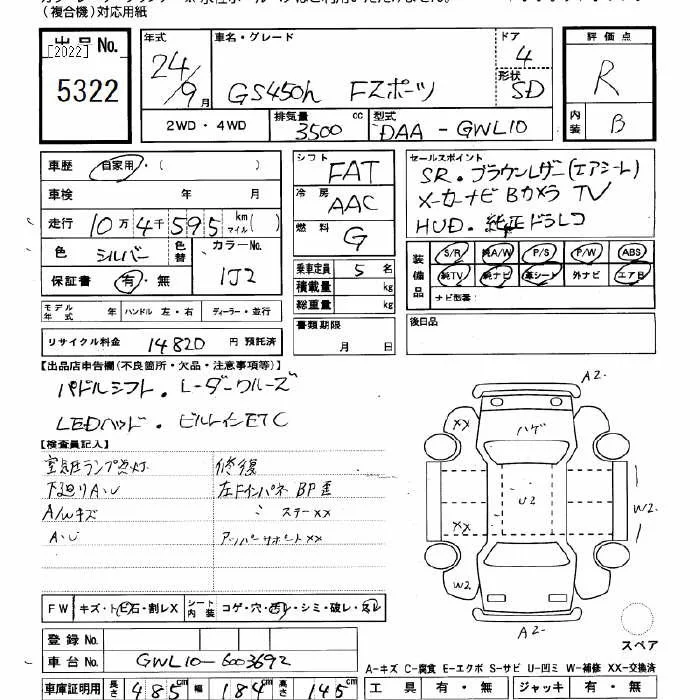 (複合機)対応用紙
出品No.
[2022]
5322
年式
24/9月
車名・グレード
GS450h Fスポーツ
ドア
4
形状
SD
2WD・4WD
排気量
3500 cc
型式
DAA-GWL10
評価点
R
内装
B
車歴 自家用・( )
車検 年 月
走行 10万4千595 km マイル( )
色 シルバー 色替 カラーNo. 1J2
保証書 有・無
モデル年式 年 ハンドル 左・右 ディーラー・並行
リサイクル料金 14820 円 預託済
シフト FAT
冷房 AAC
燃料 G
乗車定員 5 名
積載量 kg
総重量 kg
書類期限
月 日
セールスポイント
SR・ブラウンレザー(エアシート)
メーカーナビ Bカメラ TV
HUD・純正ドラレコ
装備品 S/R 純A/W P/S P/W ABS
純TV 純ナビ 革シート 外ナビ エアB
ナビ型番:
後日品
【出品店申告欄(不良箇所・欠品・注意事項等)】
パドルシフト・レーダークルーズ
LEDヘッド・ビルトインETC
【検査員記入】
空気圧ランプ点灯
下廻りA・U
A/Wキズ
A・U
修復
左Fインパネ BP歪
〃 ステーXX
アッパーサポートXX
FW キズ・トビ石・割レX シート内装 コゲ・穴・切レ・シミ・破レ・スレ
登録No.
車台No. GWL10-6003692
車庫証明用 長さ 485cm 幅 184cm 高さ 145cm
A2-
XX
ハゲ
U2
W2-
XX
W2
A2-
スペア
A-キズ C-腐食 E-エクボ S-サビ U-凹ミ W-補修 XX-交換済
工具 有・無 ジャッキ 有・無